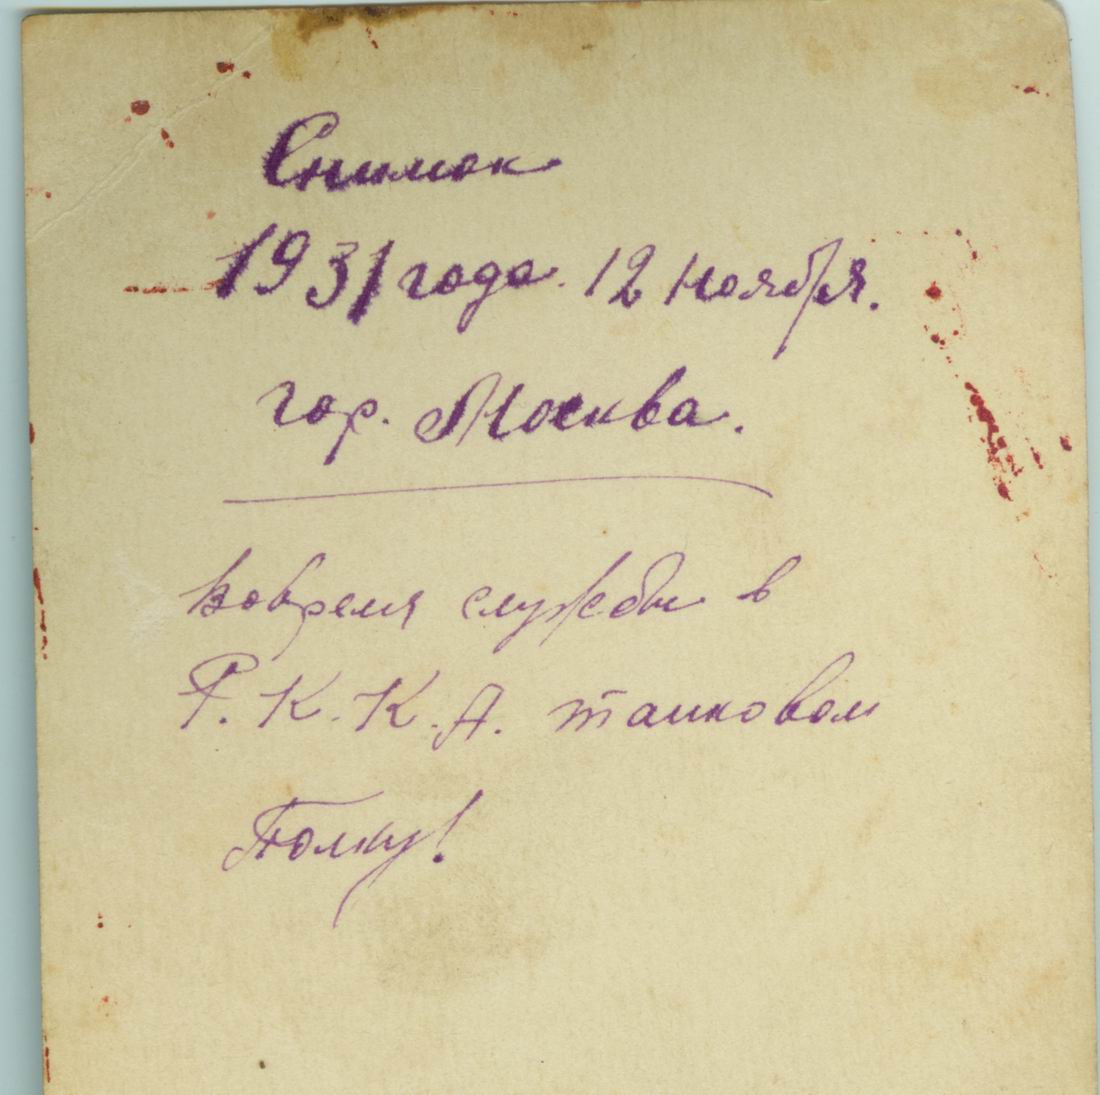 Снимок
1931 года. 12 ноября.
гор. Москва.
вовремя службы в
Р.К.К.А. танковом
Полку!